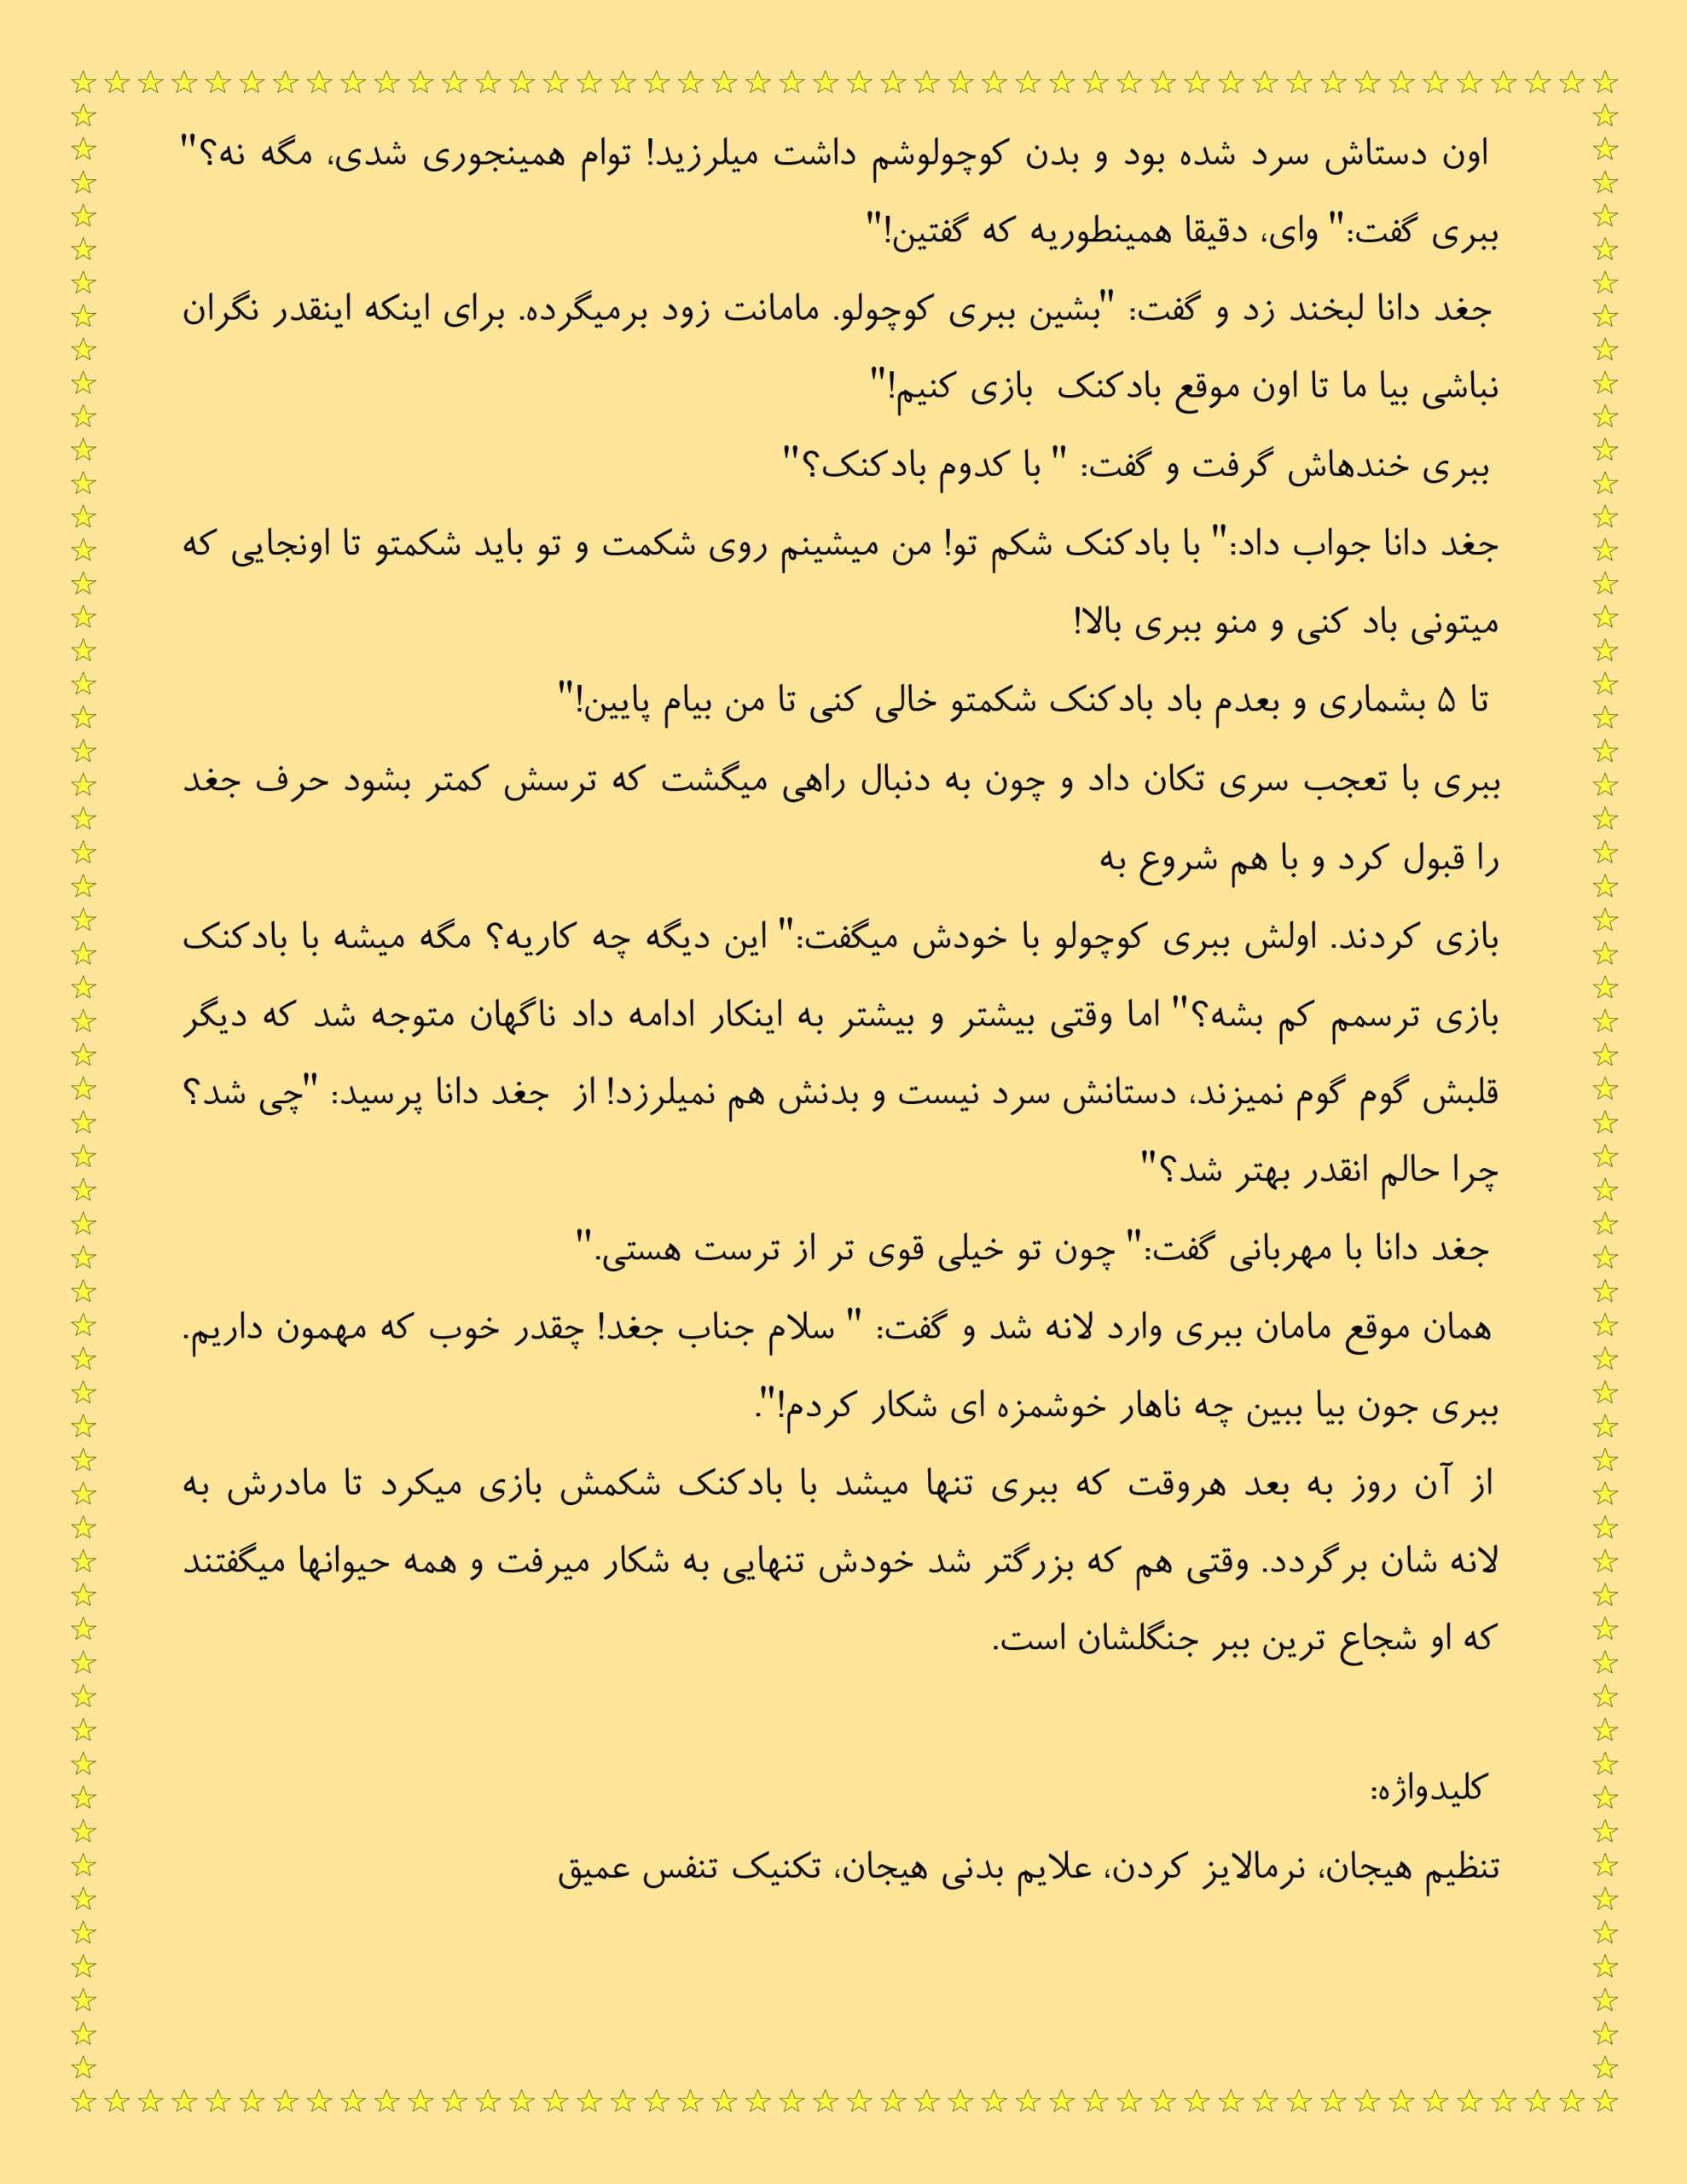 اون دستاش سرد شده بود و بدن کوچولوشم داشت میلرزید! توام همینجوری شدی، مگه نه؟"
ببری گفت:" وای، دقیقا همینطوریه که گفتین!"
جغد دانا لبخند زد و گفت: "بشین ببری کوچولو. مامانت زود برمیگرده. برای اینکه اینقدر نگران
نباشی بیا ما تا اون موقع بادکنک بازی کنیم!"
ببری خندهاش گرفت و گفت: " با کدوم بادکنک؟"
جغد دانا جواب داد:" با بادکنک شکم تو! من میشینم روی شکمت و تو باید شکمتو تا اونجایی که
میتونی باد کنی و منو ببری بالا!
تا ۵ بشماری و بعدم باد بادکنک شکمتو خالی کنی تا من بیام پایین!"
ببری با تعجب سری تکان داد و چون به دنبال راهی میگشت که ترسش کمتر بشود حرف جغد
را قبول کرد و با هم شروع به
بازی کردند. اولش ببری کوچولو با خودش میگفت:" این دیگه چه کاریه؟ مگه میشه با بادکنک
بازی ترسمم کم بشه؟" اما وقتی بیشتر و بیشتر به اینکار ادامه داد ناگهان متوجه شد که دیگر
قلبش گوم گوم نمیزند، دستانش سرد نیست و بدنش هم نمیلرزد! از جغد دانا پرسید: "چی شد؟
چرا حالم انقدر بهتر شد؟"
جغد دانا با مهربانی گفت:" چون تو خیلی قوی تر از ترست هستی."
همان موقع مامان ببری وارد لانه شد و گفت: " سلام جناب جغد! چقدر خوب که مهمون داریم.
ببری جون بیا ببین چه ناهار خوشمزه ای شکار کردم!".
از آن روز به بعد هروقت که ببری تنها میشد با بادکنک شکمش بازی میکرد تا مادرش به
لانه شان برگردد. وقتی هم که بزرگتر شد خودش تنهایی به شکار میرفت و همه حیوانها میگفتند
که او شجاع ترین ببر جنگلشان است.
کلیدواژه:
تنظیم هیجان، نرمالایز کردن، علایم بدنی هیجان، تکنیک تنفس عمیق